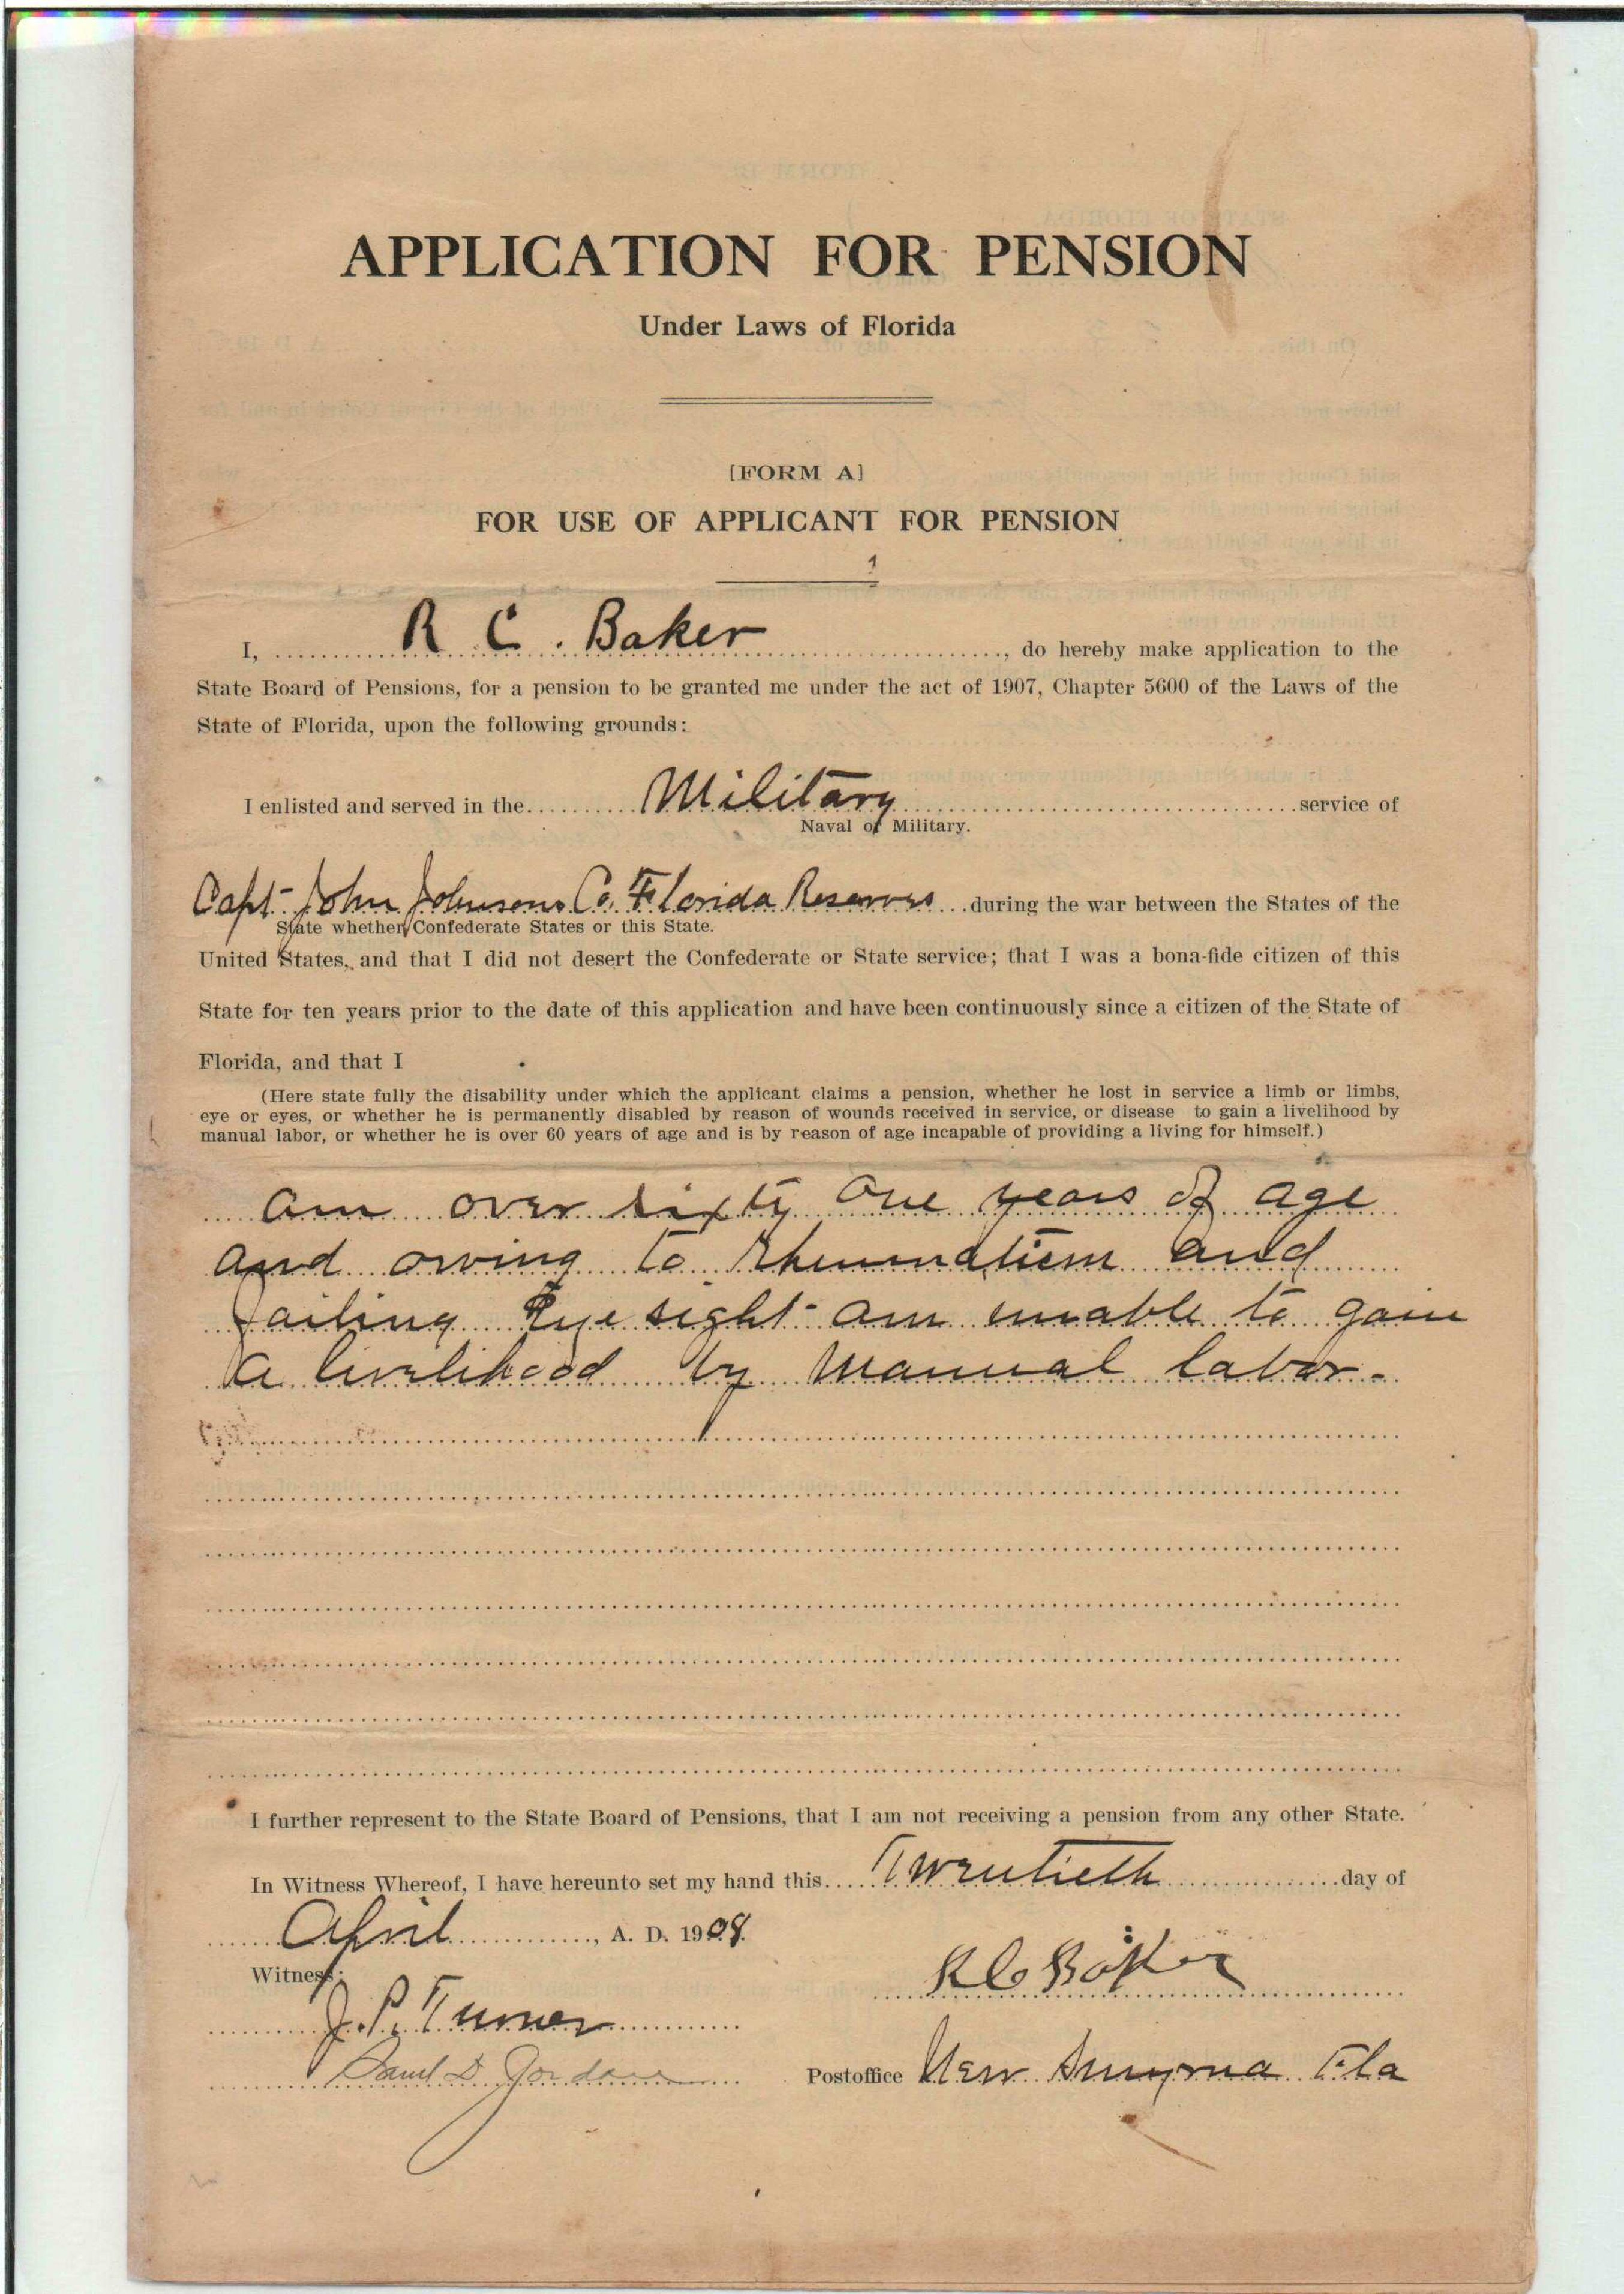 APPLICATION FOR PENSION
Under Laws of Florida
[FORM A]
FOR USE OF APPLICANT FOR PENSION
I, R C. Baker, do hereby make application to the
State Board of Pensions, for a pension to be granted me under the act of 1907, Chapter 5600 of the Laws of the
State of Florida, upon the following grounds:
I enlisted and served in the Military service of
Naval or Military.
Capt John Johnsons Co. Florida Reserves during the war between the States of the
State whether Confederate States or this State.
United States, and that I did not desert the Confederate or State service; that I was a bona-fide citizen of this
State for ten years prior to the date of this application and have been continuously since a citizen of the State of
Florida, and that I
(Here state fully the disability under which the applicant claims a pension, whether he lost in service a limb or limbs,
eye or eyes, or whether he is permanently disabled by reason of wounds received in service, or disease to gain a livelihood by
manual labor, or whether he is over 60 years of age and is by reason of age incapable of providing a living for himself.)
am over sixty one years of age
and owing to rheumatism and
failing Eye sight am unable to gain
a livelihood by manual labor.
I further represent to the State Board of Pensions, that I am not receiving a pension from any other State.
In Witness Whereof, I have hereunto set my hand this Twentieth day of
April, A. D. 1908.
Witness:
R C Baker
J. P. Turner
D. Jordan
Postoffice New Smyrna Fla